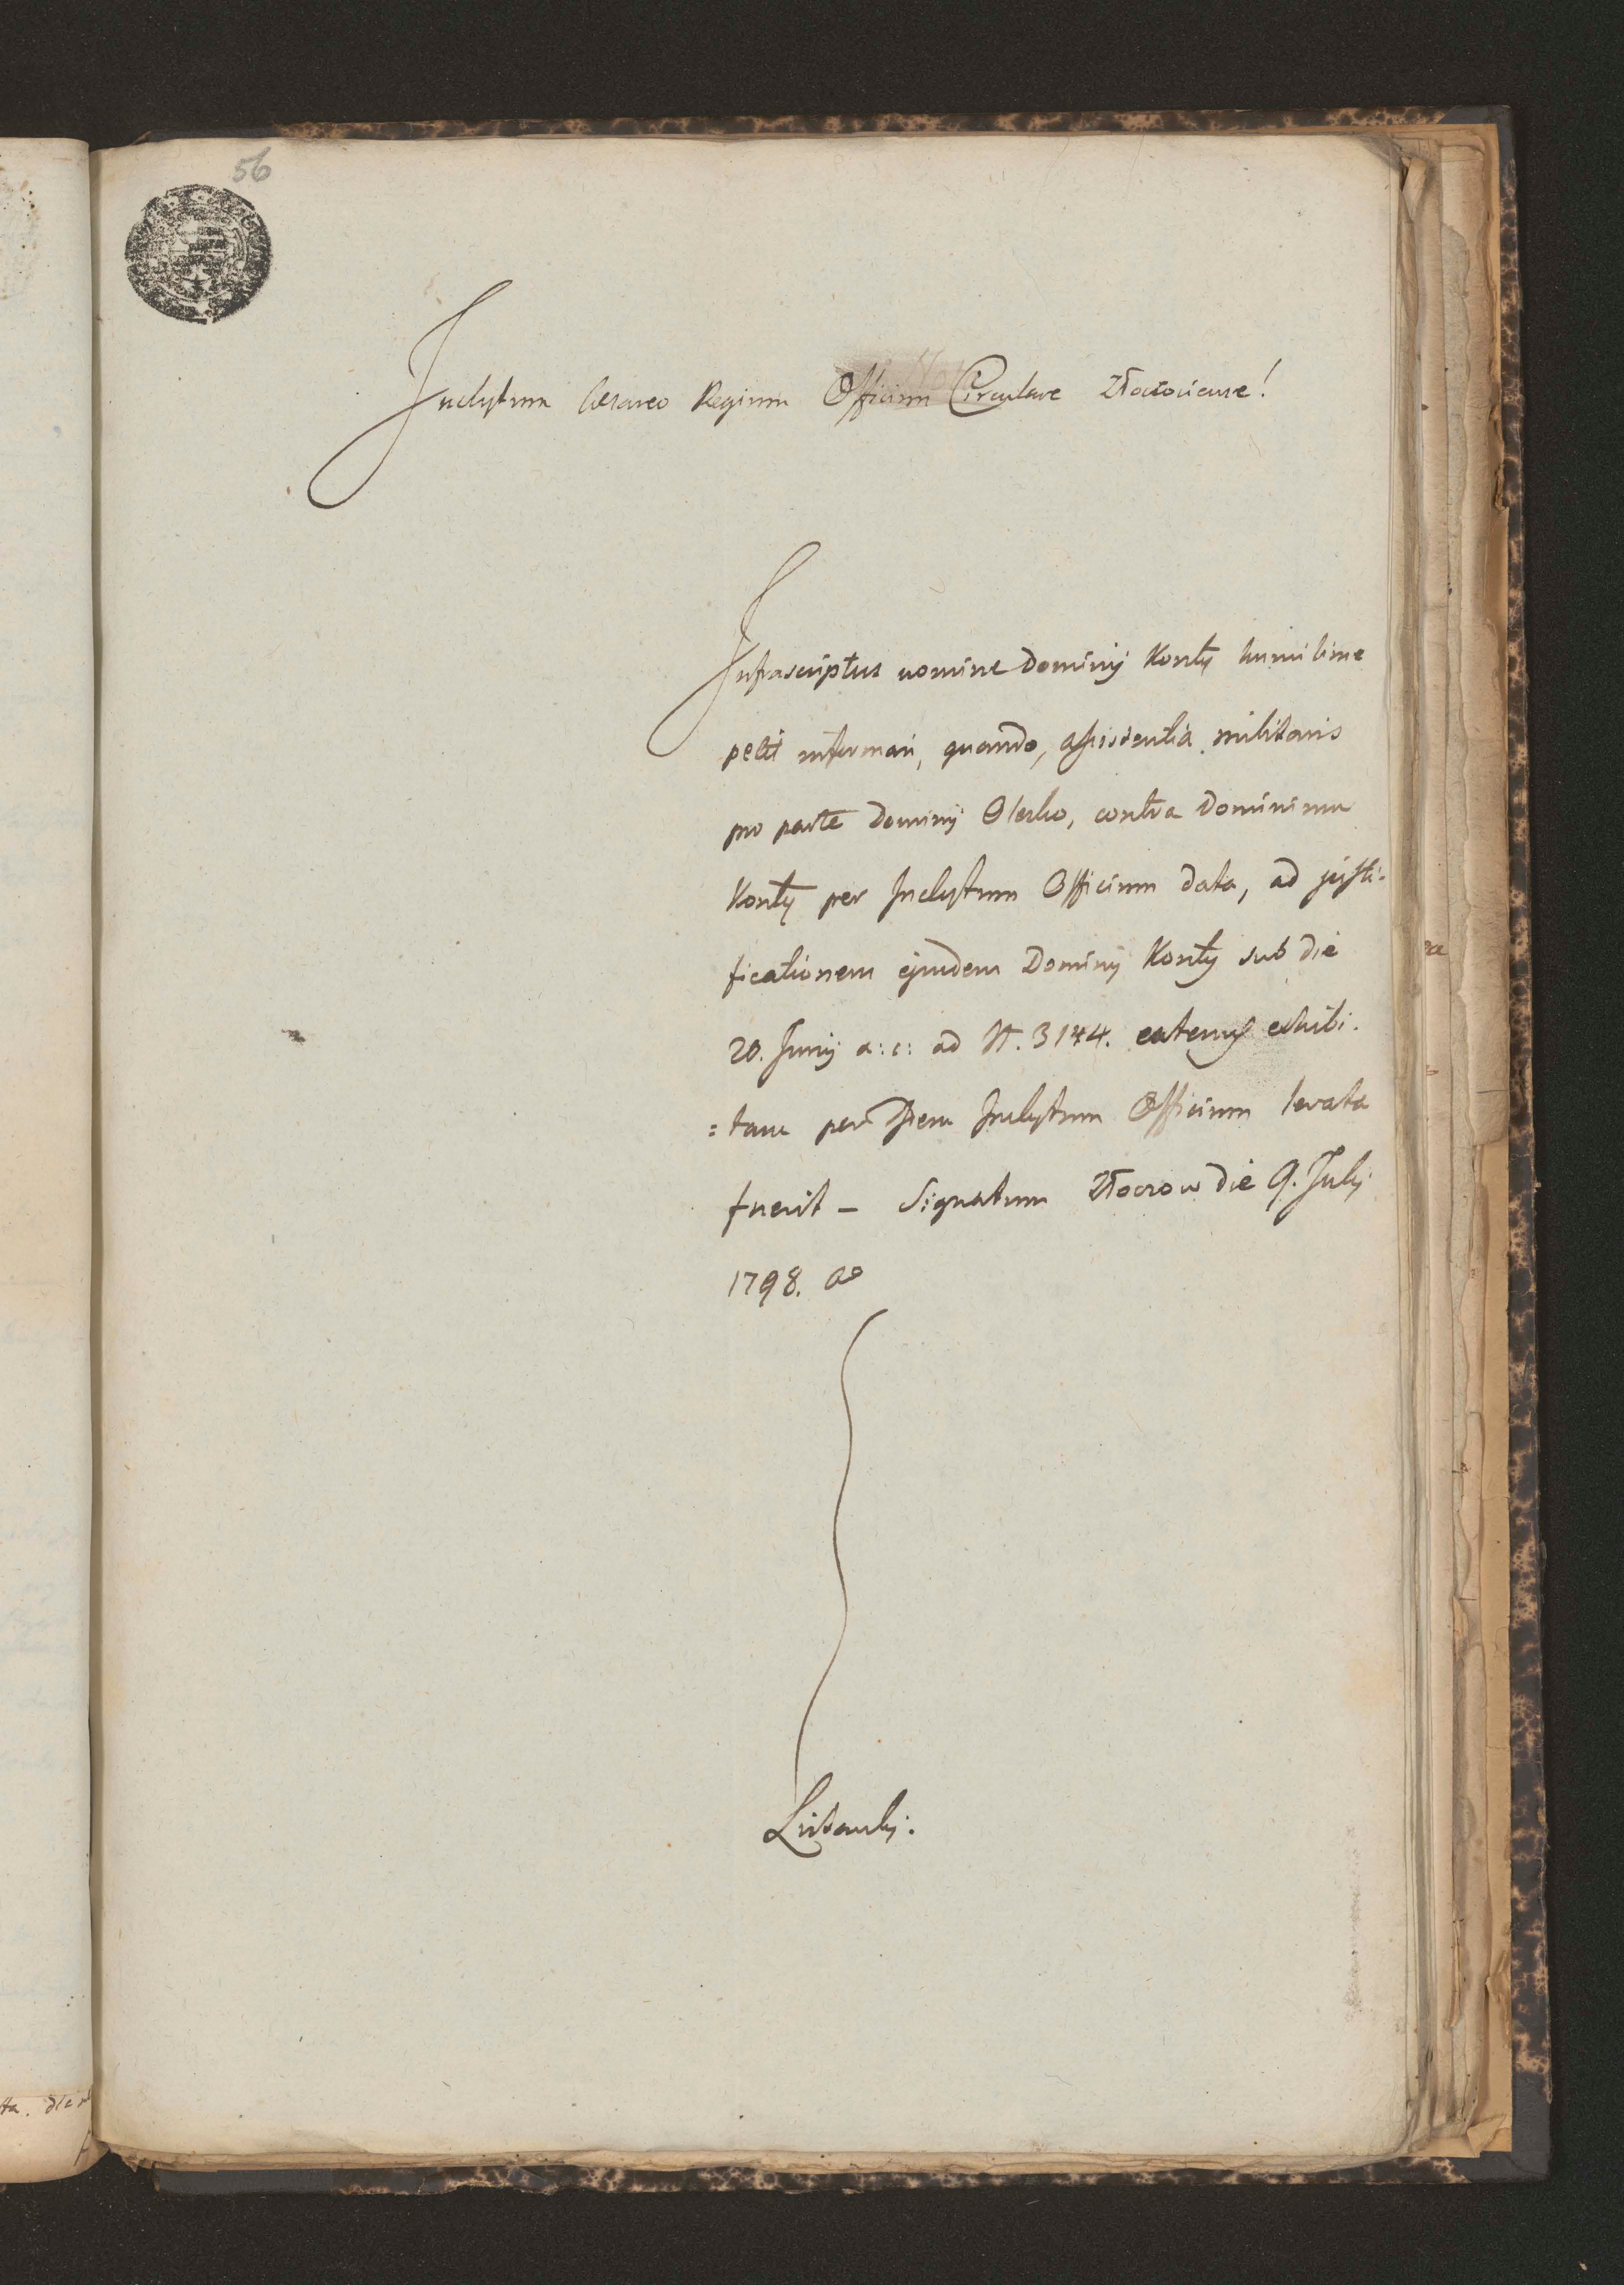 56
Inclytum Cesareo Regium Officium Circulare Złoczoviense!
Infrascriptus nomine Dominij Konty humilime
petit informari, quando, assistentia militaris
pro parte Dominij Olesko, contra Dominium
Konty per Inclytum Officium data, ad justi-
ficationem ejusdem Dominij Konty sub die
20. Junij a: c: ad N. 3144. eatenus exhibi-
=tam per Idem Inclytum Officium levata
fuerit – Signatum Złoczow die 9. Julij
1798. ao